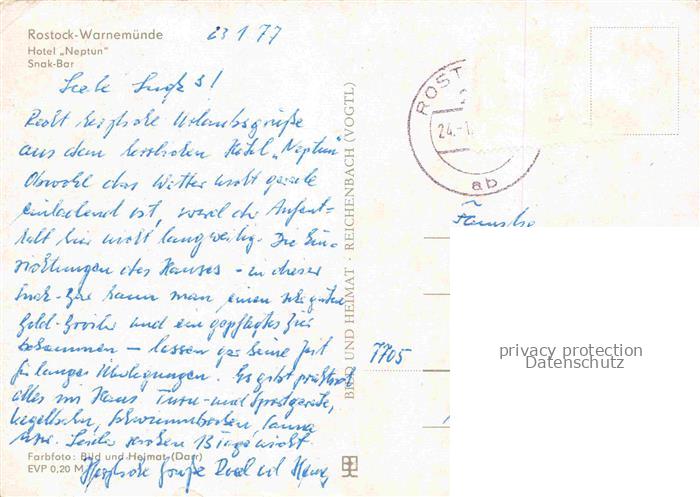 Rostock-Warnemünde
Hotel „Neptun"
Snak-Bar
23 1 77
Liebe
Recht herzliche Urlaubsgrüße
aus dem herrlichen Hotel „Neptun"
Obwohl das Wetter nicht gerade
einladend ist, wird der Aufent-
halt hier nicht langweilig. Die Ein-
richtungen des Hauses - in dieser
Snak-Bar kann man einen sehr guten
Gold-Broiler und ein gepflegtes Bier
bekommen — lassen gar keine Zeit
für lange Überlegungen. Es gibt praktisch
alles im Haus Turn- und Sportgeräte,
Kegelbahn, Schwimmbecken, Sauna
usw. Leider reichen 13 Tage nicht.
Herzliche Grüße
Farbfoto: Bild und Heimat (Darr)
EVP 0,20 M
BILD UND HEIMAT · REICHENBACH (VOGTL)
ROST
24.-1
ab
Familie
7705
privacy protection
Datenschutz